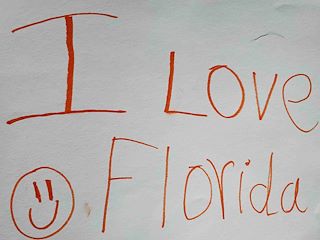 I LOVE
Florida